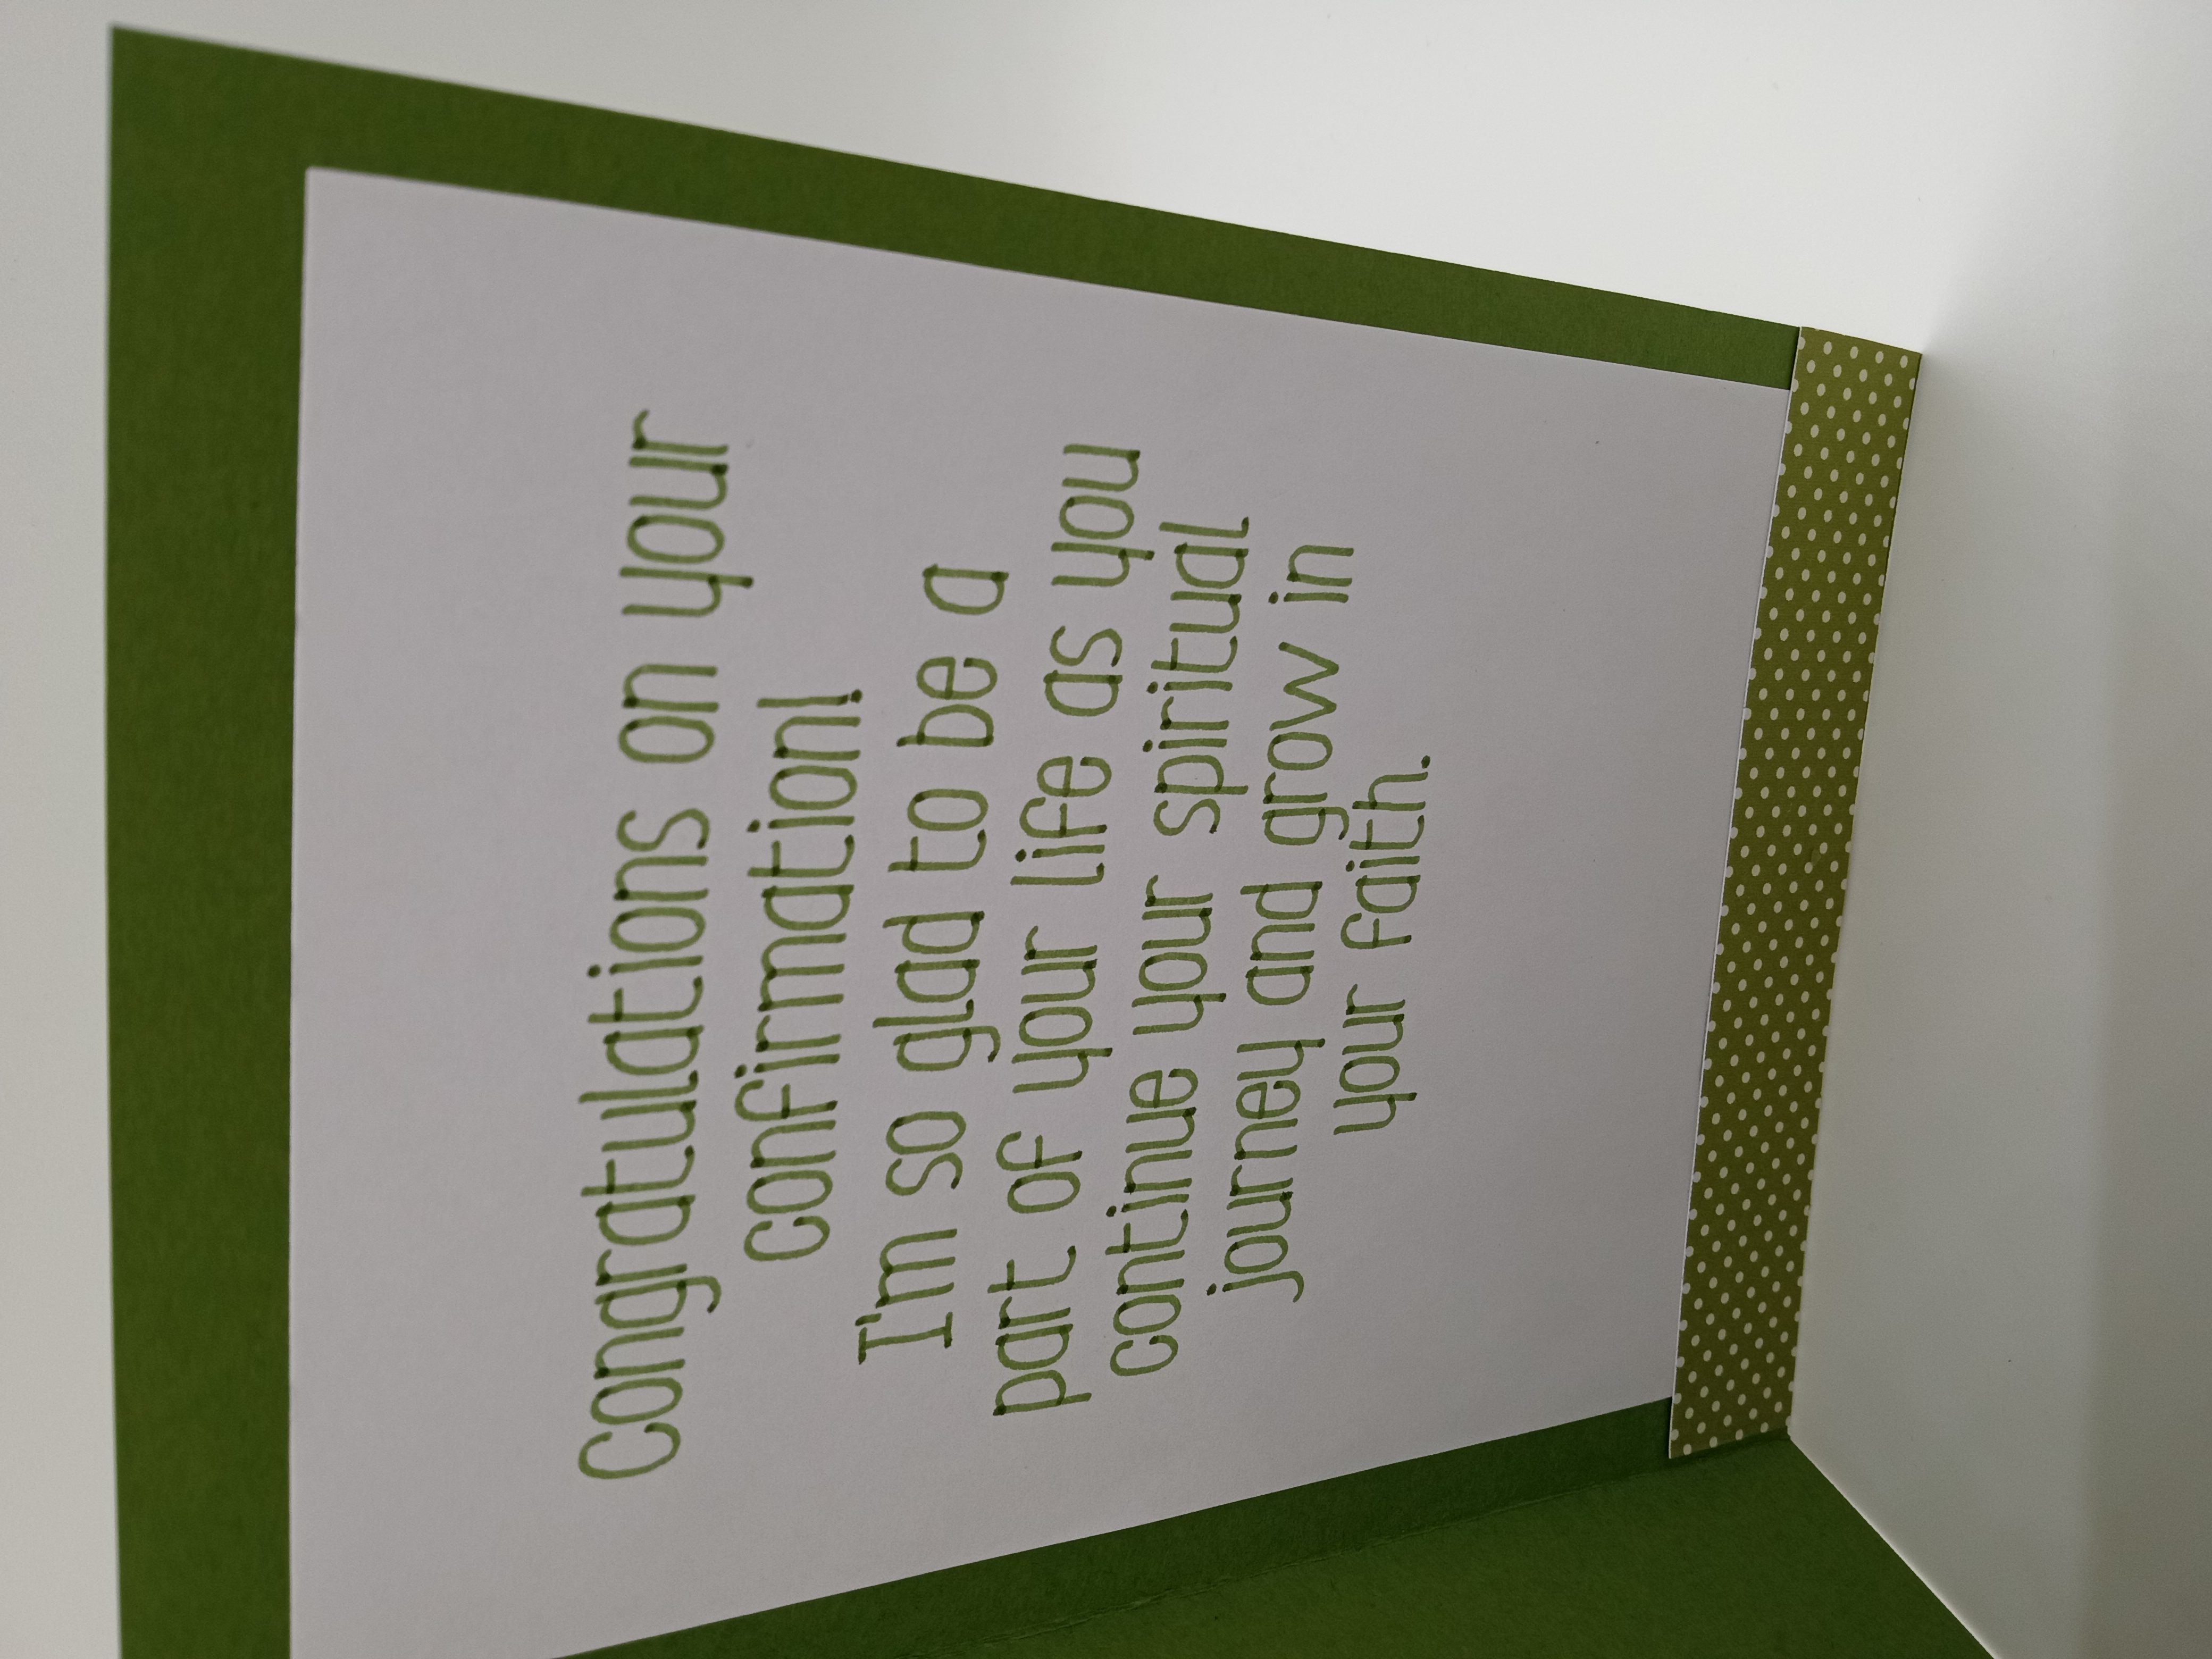 Congratulations on your
confirmation!
I'm so glad to be a
part of your life as you
continue your spiritual
journey and grow in
your faith.